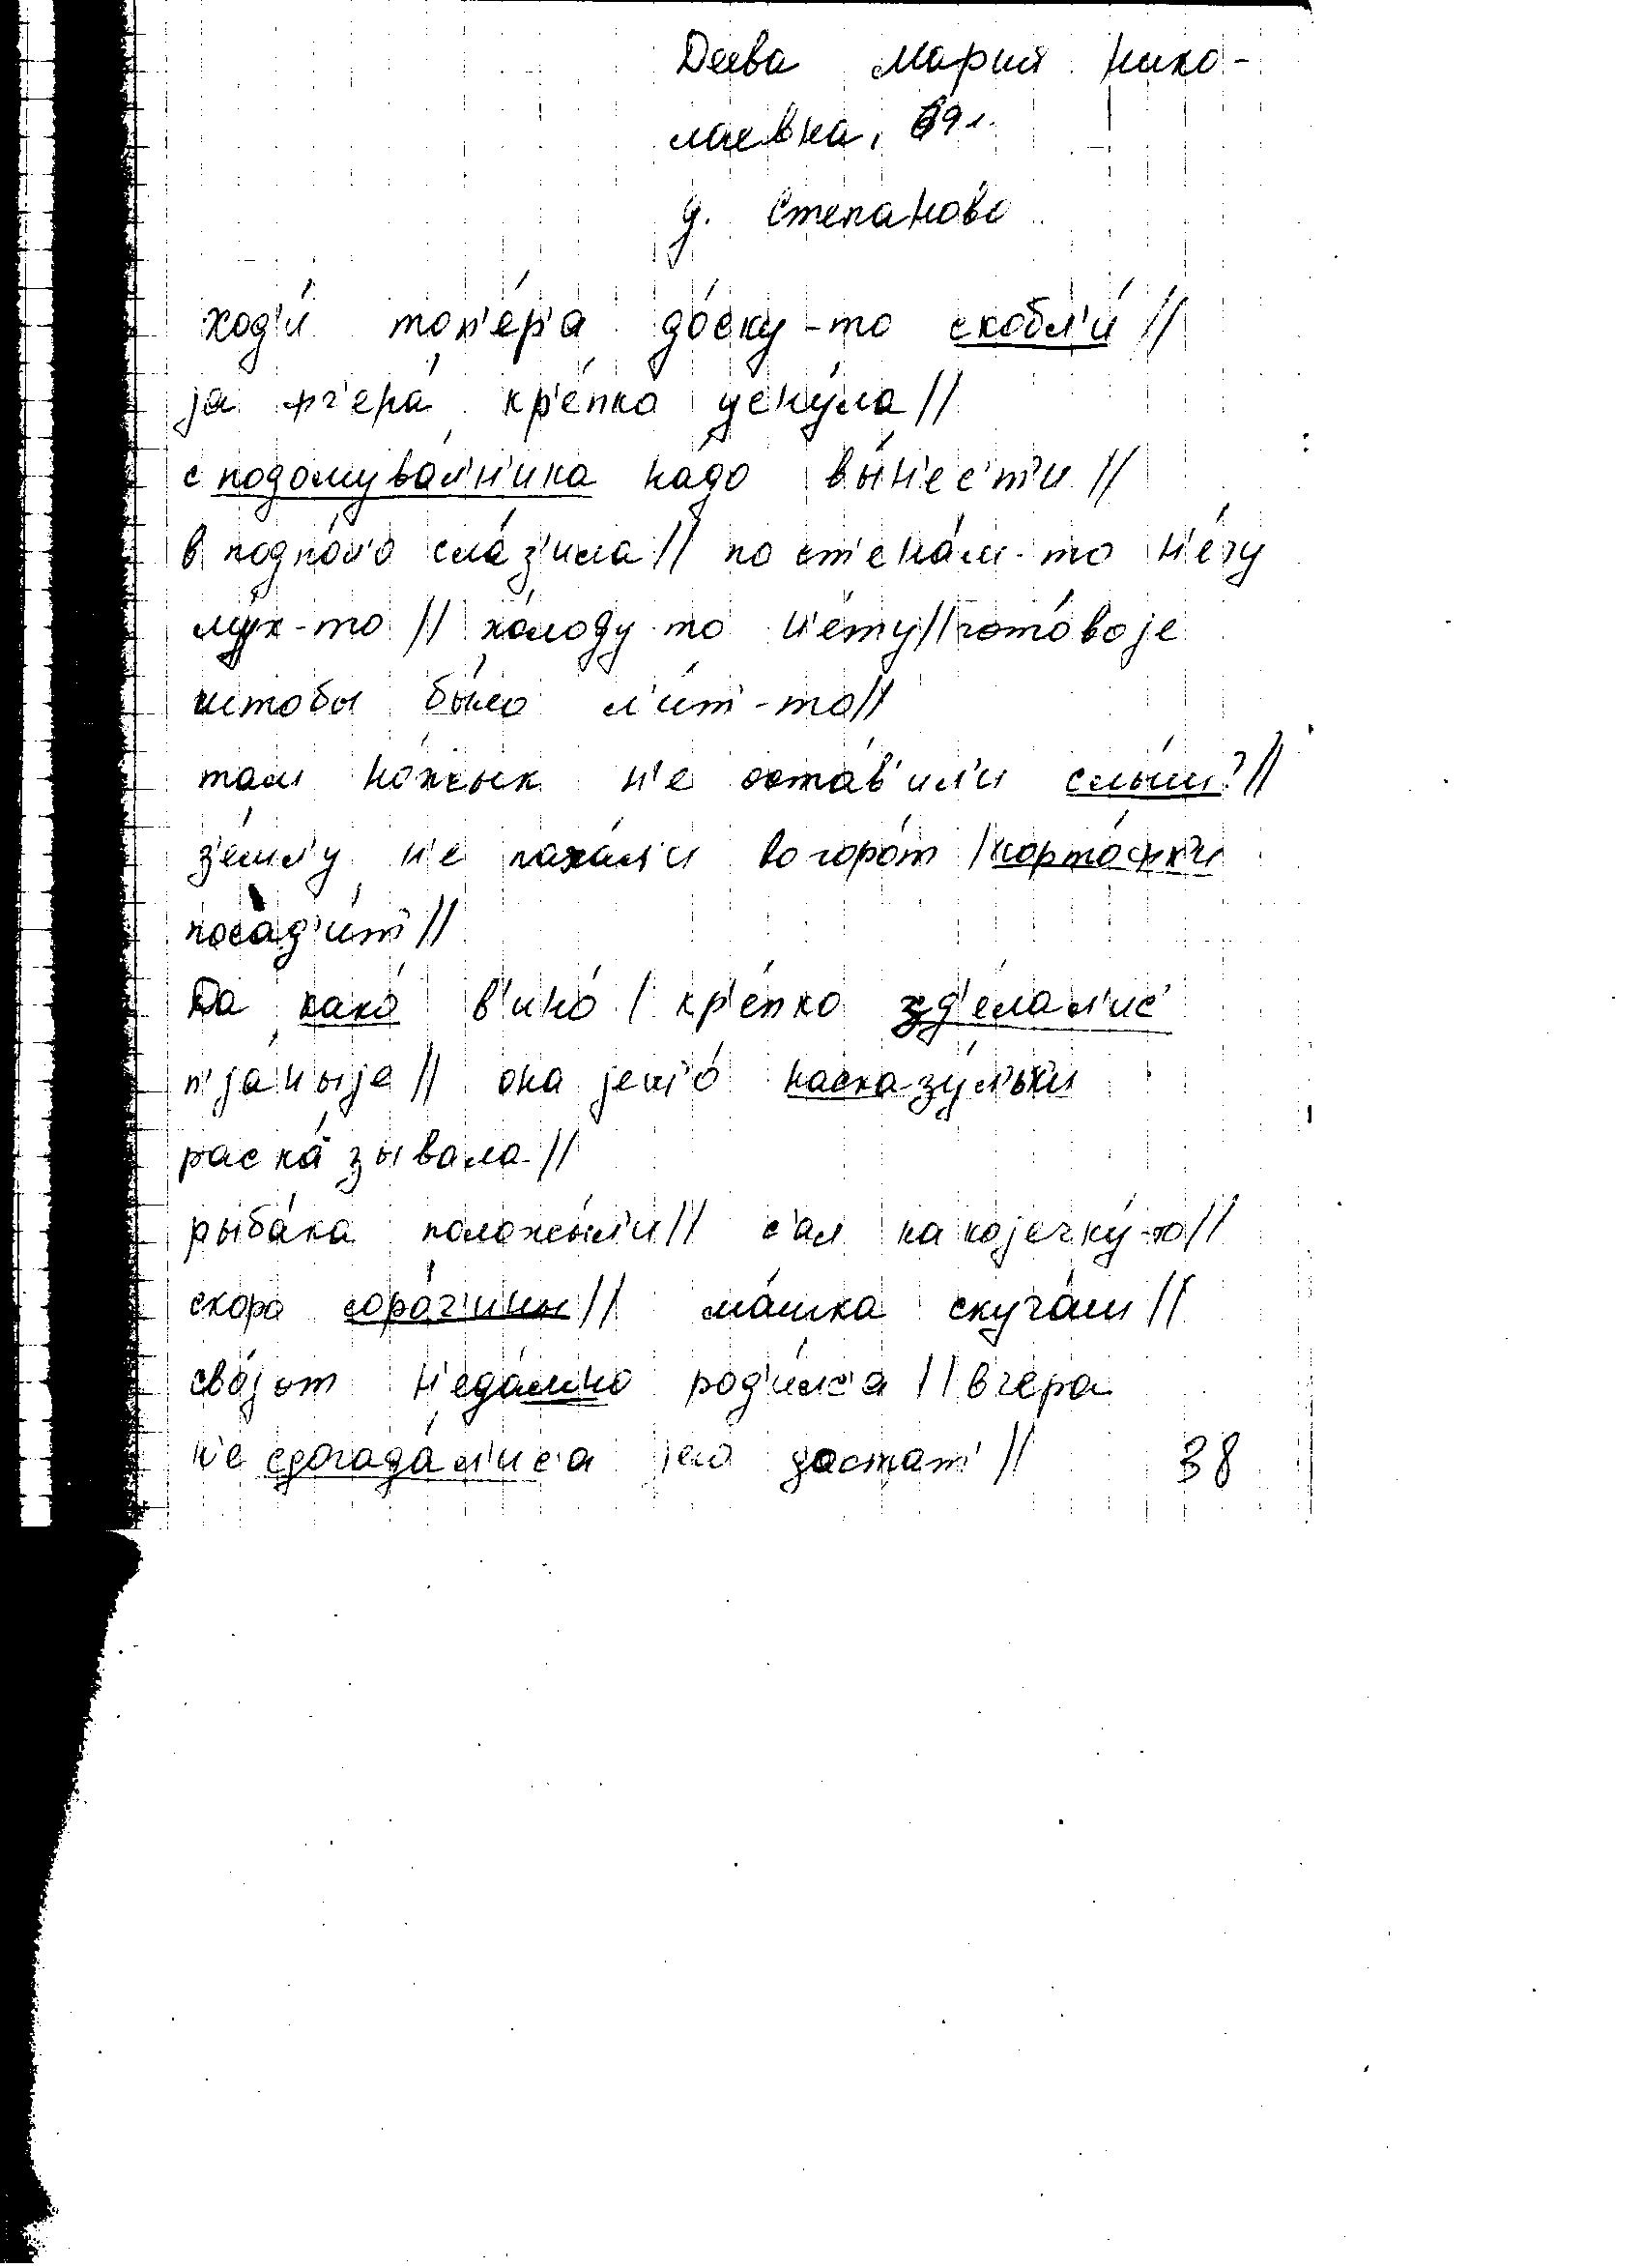 Деева Мария Нико-
лаевна, 69 л.
д. Степаново
ход'и́ топ'е́р'а до́ску-то скобл'и́ //
ја фч'ера́ кр'е́пко уснула //
с подомува́л'н'ика на́до вы́н'ес'т'и //
в подпо́л'о сла́з'ила // по ст'ена́м-то н'е́ту
му́х-то // хо́лоду-то н'е́ту // гото́воје
штобы бы́ло л'и́т'-то //
там но́жык н'е оста́в'ил'и слы́ш? //
з'е́мл'у н'е паха́л'и во горо́т / карто́шки
посад'и́т' //
Да како́ в'ино́ / кр'е́пко зд'е́лал'ис'
п'ја́ныје // она јешо́ насказу́л'ки
раска́зывала //
рыба́ка положы́л'и // с'ал на којечку́-то //
скоро соро́ч'ины // ма́шка скуча́ш //
сво́јот н'еда́мно род'и́лс'а // вчера
н'е сдогада́л'ис'а јево достат' // 38